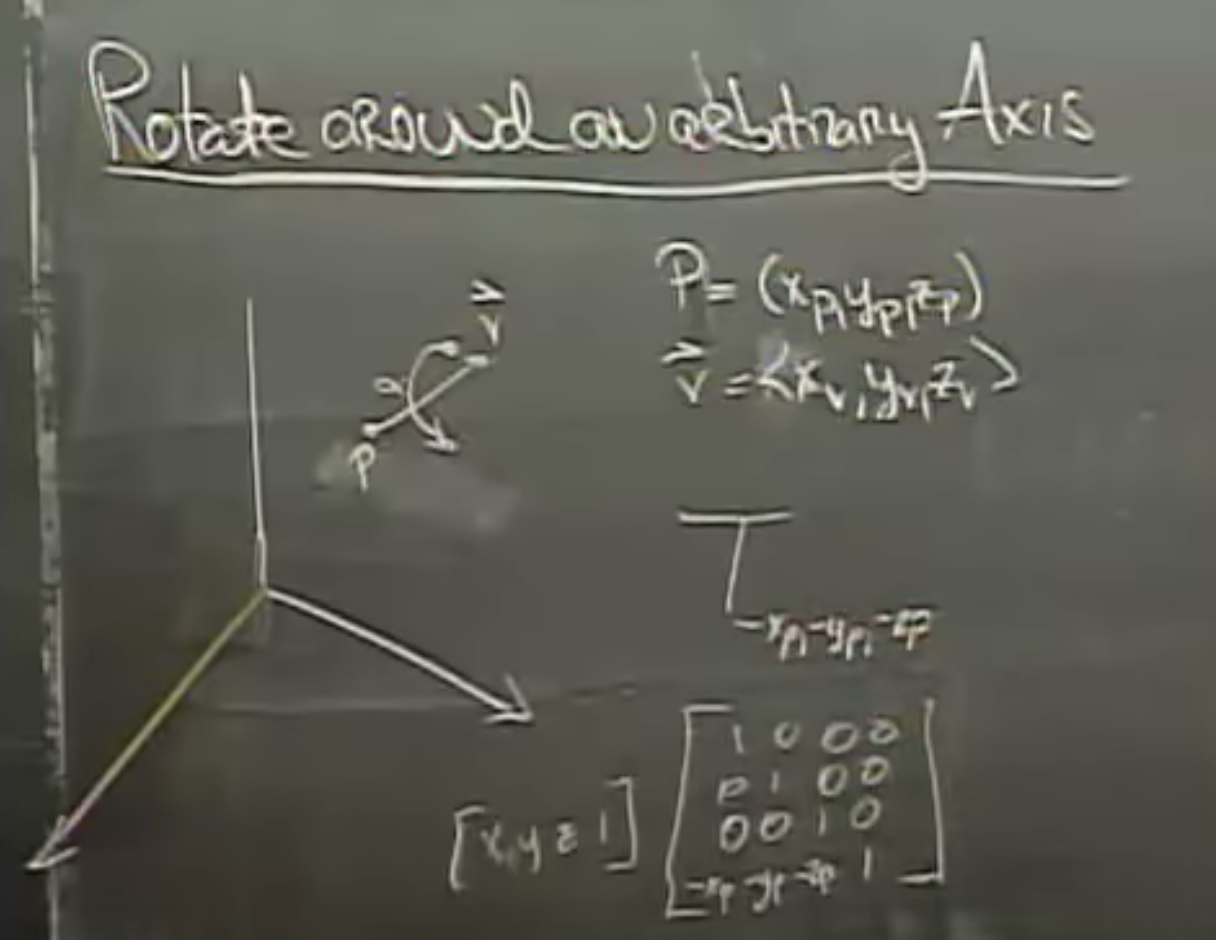 Rotate around an arbitrary Axis
P = (xp, yp, zp)
v = <xv, yv, zv>
v
θ
P
T -xp, -yp, -zp
[x, y z 1]
1 0 0 0
0 1 0 0
0 0 1 0
-xp -yp -zp 1